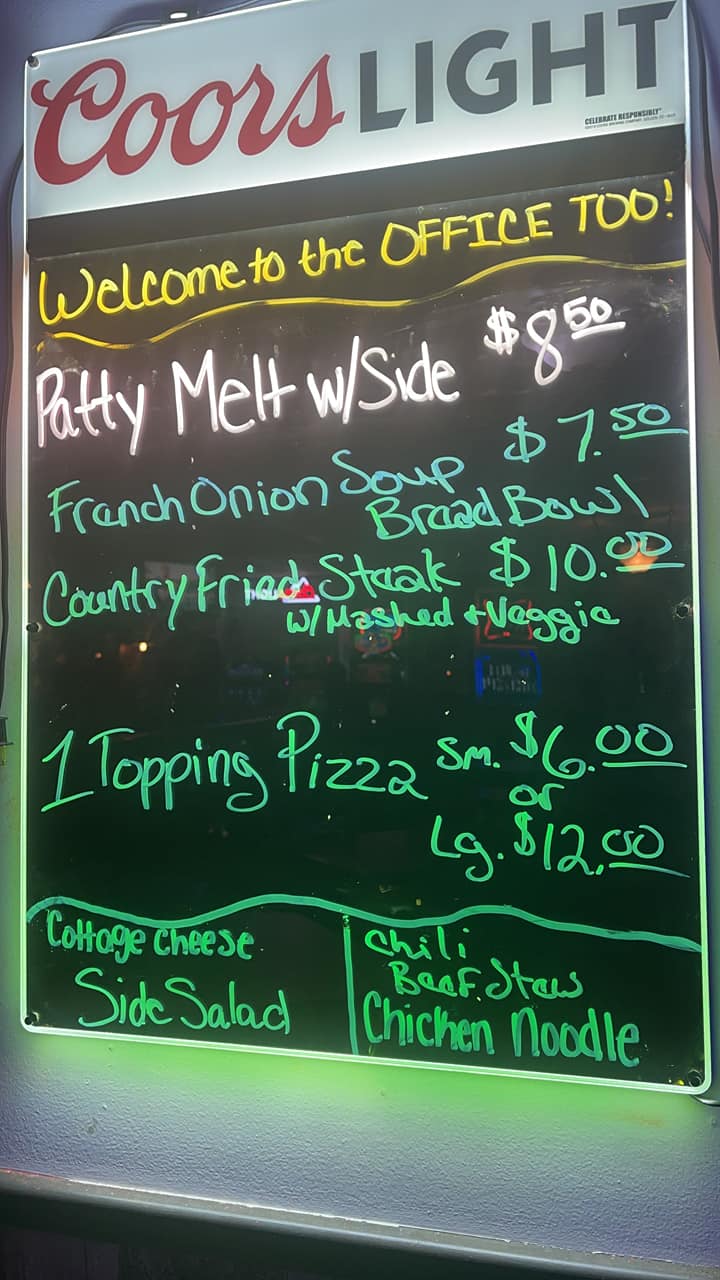 Coors LIGHT
CELEBRATE RESPONSIBLY
Welcome to the OFFICE TOO!
Patty Melt w/Side $8 50
French Onion Soup $7.50
Bread Bowl
Country Fried Steak $10.00
w/Mashed + Veggie
1 Topping Pizza Sm. $6.00
or
Lg. $12.00
Cottage Cheese
Side Salad
Chili
Beef Stew
Chicken Noodle